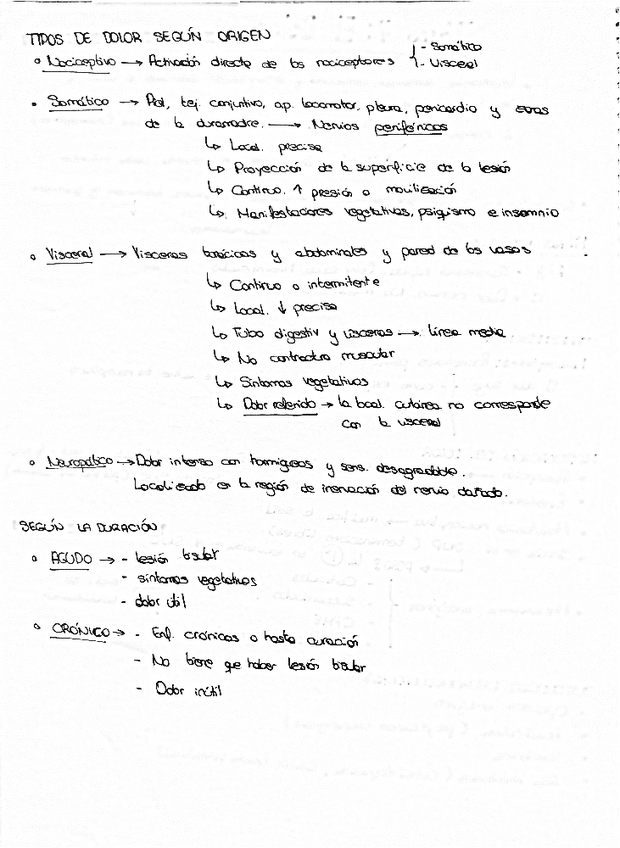 TIPOS DE DOLOR SEGÚN ORIGEN
• Nociceptivo → Activación directe de los nociceptores { - Somático
- Visceral
• Somático → Piel, tej. conjuntivo, ap. locomotor, pleura, pericardio y
de la duramadre. → Nervios periféricos
↳ Local. precisa
↳ Proyección de la superficie de la lesión
↳ Continuo. ↑ presión o movilización
↳ Manifestaciones vegetativas, psiquismo e insomnio
• Visceral → Vísceras torácicas y abdominales y pared de los vasos
↳ Continuo o intermitente
↳ Local. ↓ precisa
↳ Tubo digestiv y vísceras → línea media
↳ No contractura muscular
↳ Síntomas vegetativos
↳ Dolor referido → la local. cutánea no corresponde
con la visceral
• Neuropático → Dolor intenso con hormigueos y sens. desagradable.
Localizado en la región de inervación del nervio dañado.
SEGÚN LA DURACIÓN
• AGUDO → - lesión tisular
- síntomas vegetativos
- dolor útil
• CRÓNICO → - Enf. crónicas o hasta curación
- No tiene que haber lesión tisular
- Dolor inútil